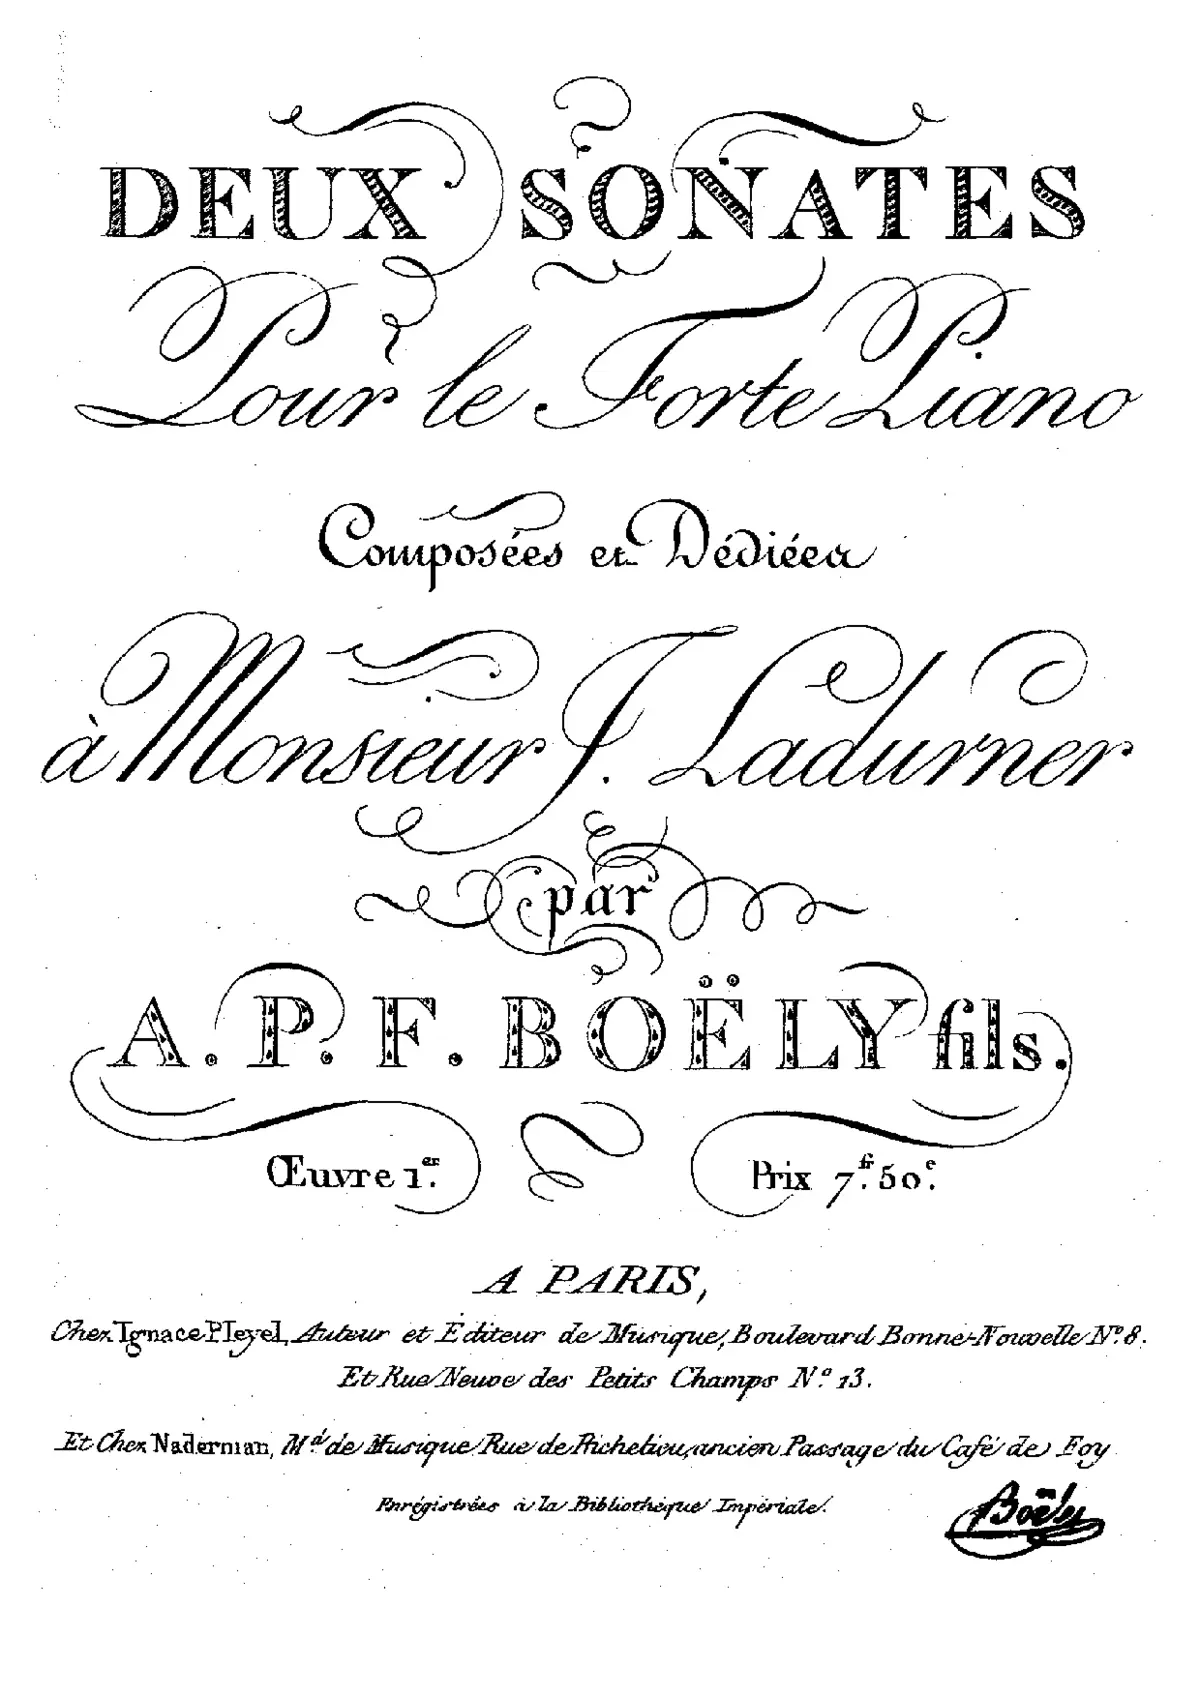 DEUX SONATES
Pour le Forte Piano
Composées et Dédiées
à Monsieur J. Ladurner
par
A. P. F. BOËLY fils.
Œuvre 1.er Prix 7.fr 50.c
A PARIS,
Chez Ignace Pleyel, Auteur et Editeur de Musique, Boulevard Bonne-Nouvelle N.º 8.
Et Rue Neuve des Petits Champs N.º 13.
Et Chez Naderman, M.d de Musique Rue de Richelieu, ancien Passage du Café de Foy
Enrégistrées à la Bibliothèque Impériale.
Boëly